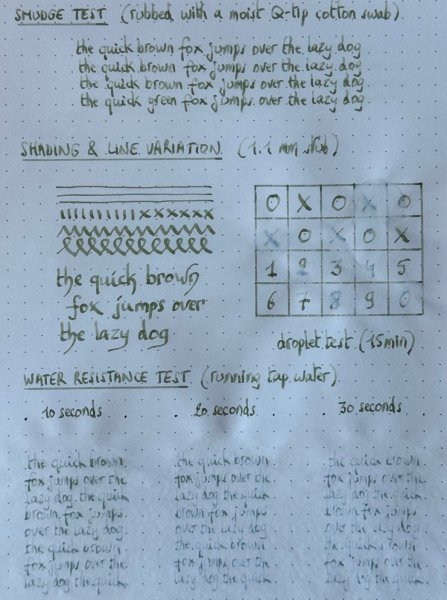 SMUDGE TEST (rubbed with a moist Q-tip cotton swab).
the quick brown fox jumps over the lazy dog
the quick brown fox jumps over the lazy dog.
the quick brown fox jumps over the lazy dog
the quick green fox jumps over the lazy dog.
SHADING & LINE VARIATION. (1.1 mm stub)
O X O X O
X O X O X
1 2 3 4 5
6 7 8 9 0
the quick brown
fox jumps over
the lazy dog
droplet test (15min)
WATER RESISTANCE TEST (running tap water).
10 seconds 20 seconds 30 seconds
the quick brown the quick brown the quick brown
fox jumps over the fox jumps over the fox jumps over the
lazy dog the quick lazy dog the quick lazy dog the quick
brown fox jumps brown fox jumps brown fox jumps
over the lazy dog over the lazy dog over the lazy dog
the quick brown the quick brown the quick brown
fox jumps over the fox jumps over the fox jumps over the
lazy dog the quick lazy dog the quick lazy dog the quick